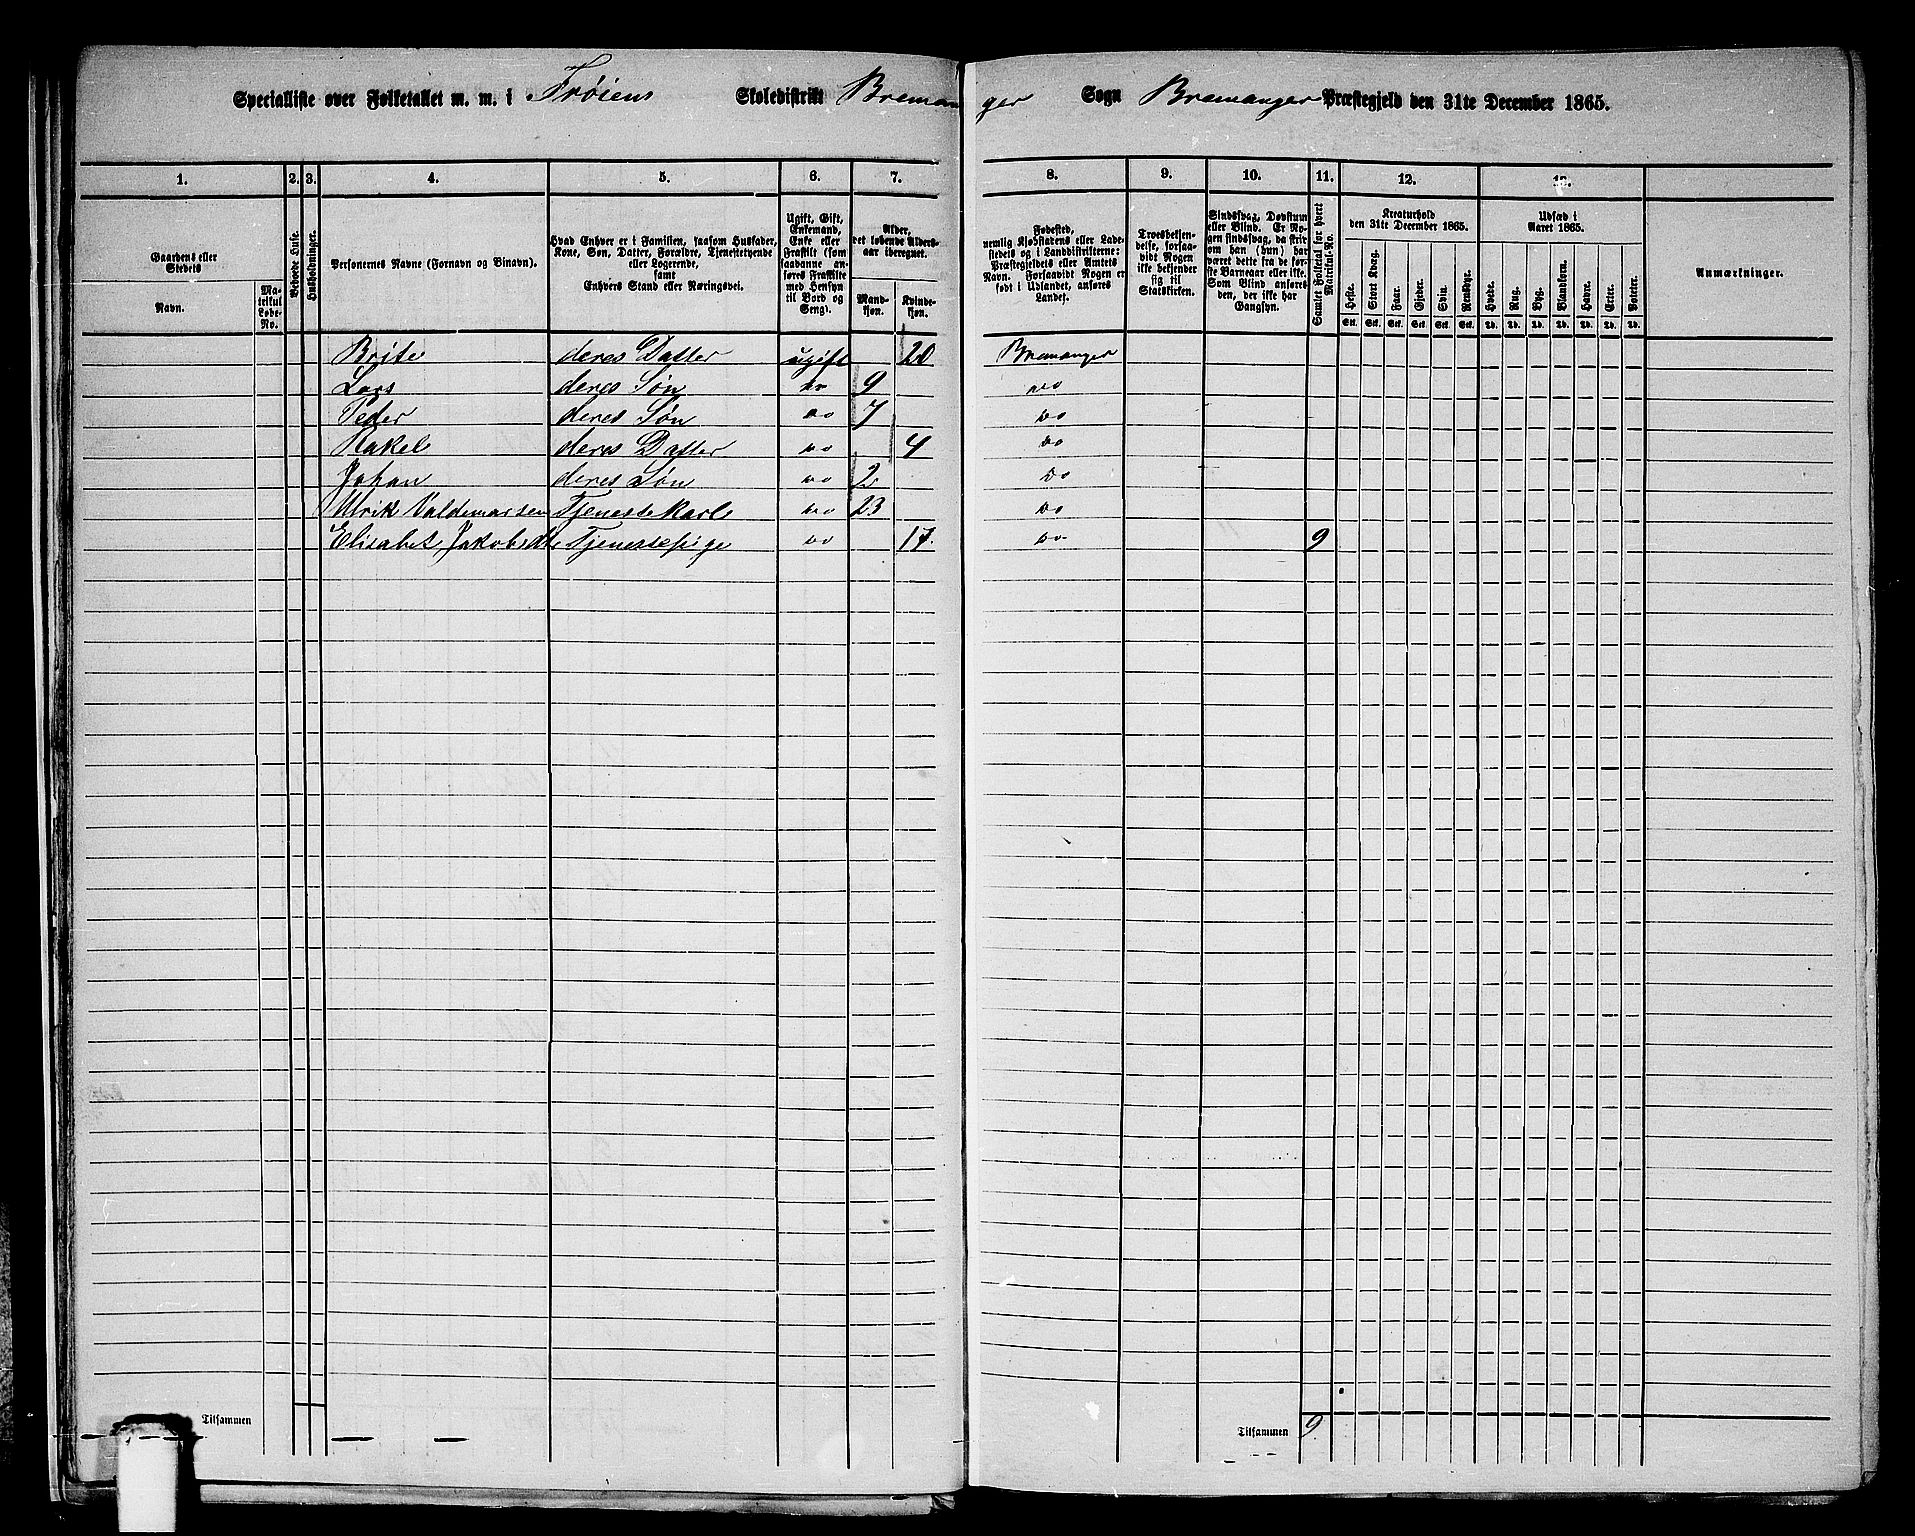 Specialliste over Folketallet m. m. i Frøiens Skoledistrikt Bremanger Sogn Bremanger Præstegjeld den 31te December 1865.
1. 2. 3. 4. 5. 6. 7. 8. 9. 10. 11. 12. 13.
Gaardens eller Stedets
Navn.
Matrikul Løbe-No.
Beboede Huse.
Husholdninger.
Personernes Navne (Fornavn og Binavn).
Hvad Enhver er i Familien, saasom Husfader, Kone, Søn, Datter, Forældre, Tjenestetyende eller Logerende, samt Enhvers Stand eller Næringsvei.
Ugift, Gift, Enkemand, Enke eller Fraskilt (som saadanne anføres Fraskilte med Hensyn til Bord og Seng).
Alder, det løbende Alders-aar iberegnet.
Mand-kjøn.
Kvinde-kjøn.
Fødested, nemlig Kjøbstadens eller Ladestedets og i Landdistrikterne: Præstegjeldets eller Amtets Navn. Forsaavidt Nogen er født i Udlandet, anføres Landet.
Troesbekjendelse, forsaavidt Nogen ikke bekjender sig til Statskirken.
Sindssvag, Døvstum eller Blind. Er Nogen sindssvag, da skrives om han (hun) har været dette fra de første Barneaar eller ikke. Som Blind anføres den, der ikke har Gangsyn.
Samlet Folketal for hvert Matrikul-No.
Kreaturhold den 31te December 1865.
Heste. Stort Kvæg. Faar. Gjeder. Svin. Rensdyr.
Stk. Stk. Stk. Stk. Stk. Stk.
Udsæd i Aaret 1865.
Hvede. Rug. Byg. Blandkorn. Havre. Erter. Poteter.
Td. Td. Td. Td. Td. Td. Td.
Anmærkninger.
Brite deres Datter ugift 20 Bremanger
Lars deres Søn do 9 do
Peder deres Søn do 7 do
Rakel deres Datter do 4 do
Johan deres Søn do 2 do
Ulrik Valdemarsen Tjenestekarl do 23 do
Elisabet Jakobsdtr Tjenestepige do 17 do 9
Tilsammen
Tilsammen 9